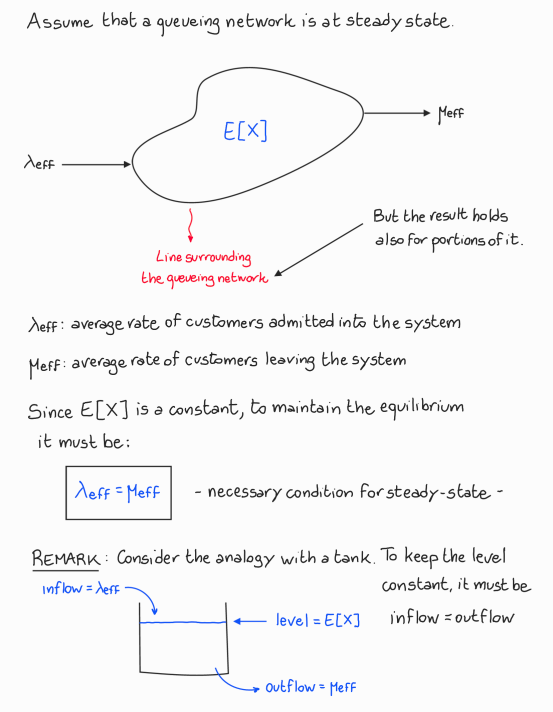 Assume that a queueing network is at steady state.
E[X]
μeff
λeff
But the result holds
also for portions of it.
Line surrounding
the queueing network
λeff: average rate of customers admitted into the system
μeff: average rate of customers leaving the system
Since E[X] is a constant, to maintain the equilibrium
it must be:
λeff = μeff
- necessary condition for steady-state -
REMARK: Consider the analogy with a tank. To keep the level
constant, it must be
inflow = outflow
inflow = λeff
level = E[X]
outflow = μeff